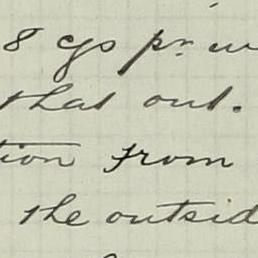 8 cgs pr w
that out.
tion from
the outsid